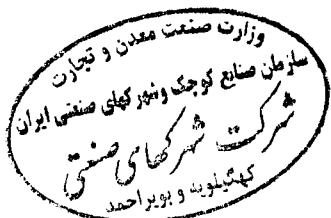 وزارت صنعت معدن و تجارت
سازمان صنایع کوچک و شهرکهای صنعتی ایران
شرکت شهرکهای صنعتی
کهگیلویه و بویراحمد